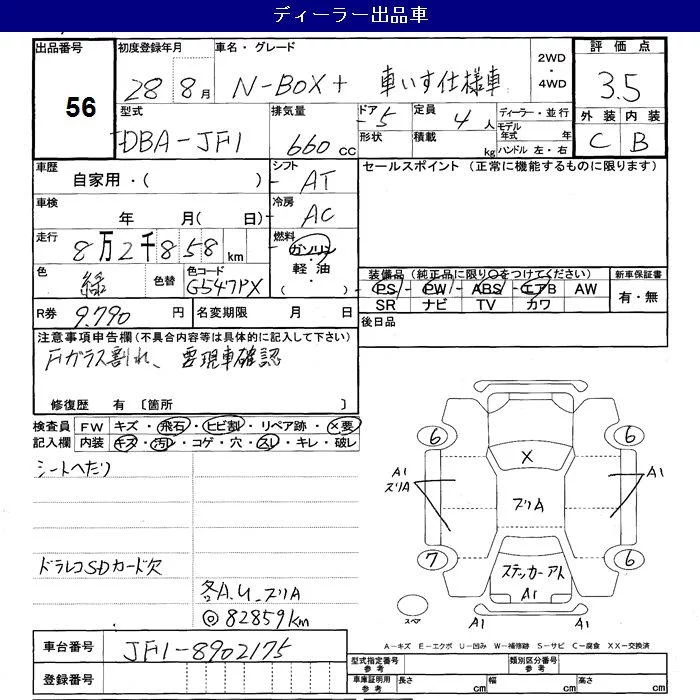 ディーラー出品車
出品番号 初度登録年月 車名・グレード 2WD・4WD 評価点
56 28 8月 N-BOX+ 車いす仕様車 3.5
型式 排気量 ドア 定員 ディーラー・並行 外装 内装
DBA-JF1 660cc 5 4人 モデル年式 年 C B
形状 積載 kg ハンドル 左・右
車歴 シフト セールスポイント (正常に機能するものに限ります)
自家用・( ) AT
車検 冷房
年 月( 日) AC
走行 燃料
8万2千858km ガソリン・軽油・( )
色 色替 色コード 装備品(純正品に限り○をつけてください) 新車保証書
緑 G547PX PS PW ABS エアB AW 有・無
SR ナビ TV カワ
R券 9.790円 名変期限 月 日 後日品
注意事項申告欄(不具合内容等は具体的に記入して下さい)
Fガラス割れ、要現車確認
修復歴 有 〔箇所 〕
検査員 FW キズ・飛石・ヒビ割・リペア跡・X要
記入欄 内装 キズ・汚レ・コゲ・穴・スレ・キレ・破レ
シートへたり
ドラレコSDカード欠
各A.U.ズリA
◎82859km
6 6
X
A1 ズリA A1
ズリA
7 6
ステッカーアト
A1
スペア A1 A1
A-キズ E-エクボ U-凹み W-補修跡 S-サビ C-腐食 XX-交換済
車台番号 JF1-8902175
型式指定番号 参考 類別区分番号 参考
登録番号
車庫証明用 参考 長さ cm 幅 cm 高さ cm